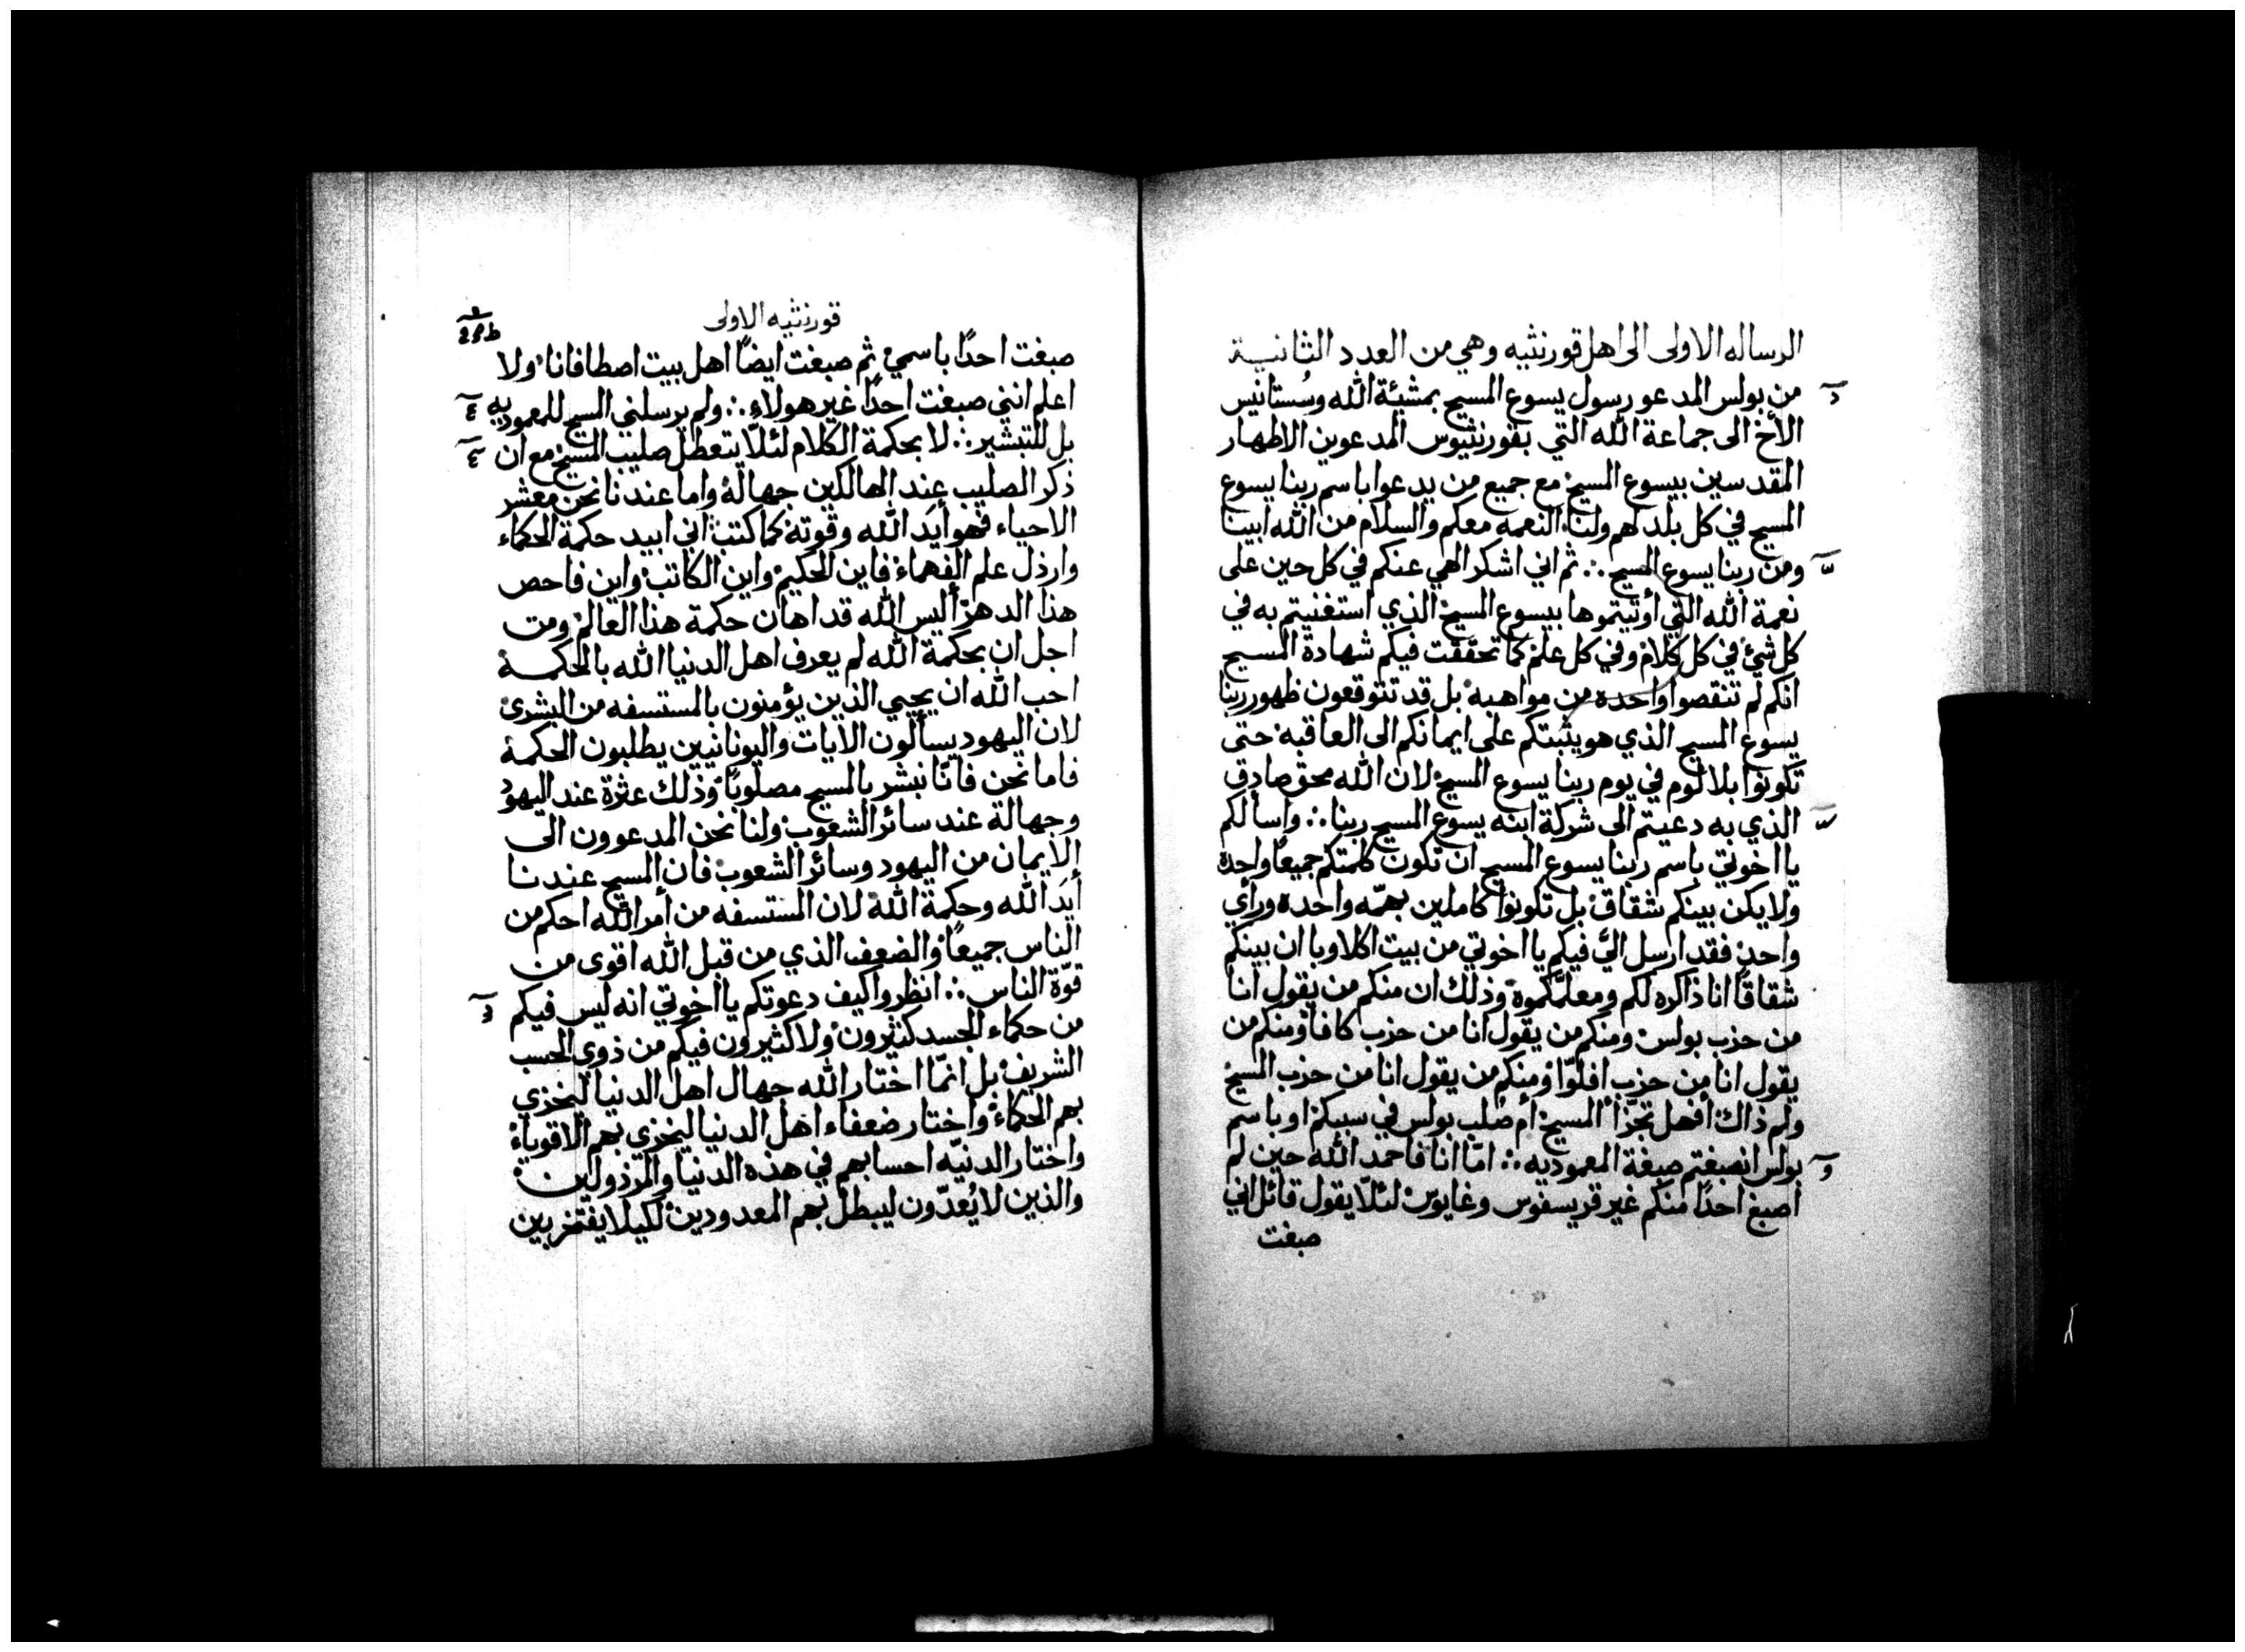 الرساله الاولى الى اهل قورنثيه وهي من العدد الثانية
من بولس المدعو رسول يسوع المسيح بمشيئة الله وسُستانيس
الأخ الى جماعة الله التي بقورنثيوس المدعوين الاطهار
المقدسين بيسوع المسيح مع جميع من يدعوا باسم ربنا يسوع
المسيح في كل بلد لهم ولنا النعمه معكم والسلام من الله ابينا
ومن ربنا يسوع المسيح ∴ ثم اني اشكر الهي عنكم في كل حين على
نعمة الله التي أوتيتموها بيسوع المسيح الذي استغنيتم به في
كل شئ في كل كلام وفي كل علم كما تحققت فيكم شهادة المسيح
انكم لم تنقصوا واحده من مواهبه بل قد تتوقعون ظهور ربنا
يسوع المسيح الذي هو يثبتكم على ايمانكم الى العاقبه حتى
تكونوا بلا لوم في يوم ربنا يسوع المسيح لان الله محق صادق
الذي به دعيتم الى شركة ابنه يسوع المسيح ربنا ∴ واسألكم
يا اخوتي باسم ربنا يسوع المسيح ان تكون كلمتكم جميعًا واحدة
ولا يكن بينكم شقاق بل تكونوا كاملين بهمّه واحده ورأي
واحد فقد ارسل اليَّ فيكم يا اخوتي من بيت اكلاويا ان بينكم
شقاقًا انا ذاكره لكم ومعلمكموه وذلك ان منكم من يقول انا
من حزب بولس ومنكم من يقول انا من حزب كافا ومنكم من
يقول انا من حزب افلوّا ومنكم من يقول انا من حزب المسيح
ولم ذاك أفهل تجزّأ المسيح أم صُلب بولس في سببكم او باسم
بولس انصبغتم صبغة المعموديه ∴ امّا انا فاحمد الله حين لم
اصبغ احدًا منكم غير قريسفوس وغايوس لئلّا يقول قائل اني
صبغت
قورنثيه الاولى
صبغت احدًا باسمي ثم صبغت ايضًا اهل بيت اصطافانا ولا
اعلم انني صبغت احدًا غير هولاءِ ∴ ولم يرسلني المسيح للمعموديه
بل للتبشير ∴ لا بحكمة الكلام لئلّا يتعطل صليب المسيح مع ان
ذكر الصليب عند الهالكين جهالة واما عندنا نحن معشر
الاحياء فهو أيَد الله وقوته كما كتب اني ابيد حكمة الحكماء
وارذل علم الفهماء فاين الحكيم واين الكاتب واين فاحص
هذا الدهر أليس الله قد اهان حكمة هذا العالم ومن
اجل ان بحكمة الله لم يعرف اهل الدنيا الله بالحكمة
احب الله ان يحيي الذين يؤمنون بالمستسفه من البشرى
لان اليهود يسألون الايات واليونانيين يطلبون الحكمة
فاما نحن فانّا نبشر بالمسيح مصلوبًا وذلك عثرة عند اليهود
وجهالة عند سائر الشعوب ولنا نحن المدعوون الى
الايمان من اليهود وسائر الشعوب فان المسيح عندنا
أيَد الله وحكمة الله لان المستسفه من أمر الله احكم من
الناس جميعًا والضعف الذي من قبل الله اقوى من
قوّة الناس ∴ انظروا كيف دعوتكم يا اخوتي انه ليس فيكم
من حكماء الجسد كثيرون ولا كثيرون فيكم من ذوي الحسب
الشريف بل انمّا اختار الله جهال اهل الدنيا ليخزي
بهم الحكماء واختار ضعفاء اهل الدنيا ليخزي بهم الاقوياء
واختار الدنيّه احسابهم في هذه الدنيا والمرذولين
والذين لا يُعدّون ليبطل بهم المعدودين لكيلا يفتخر بين